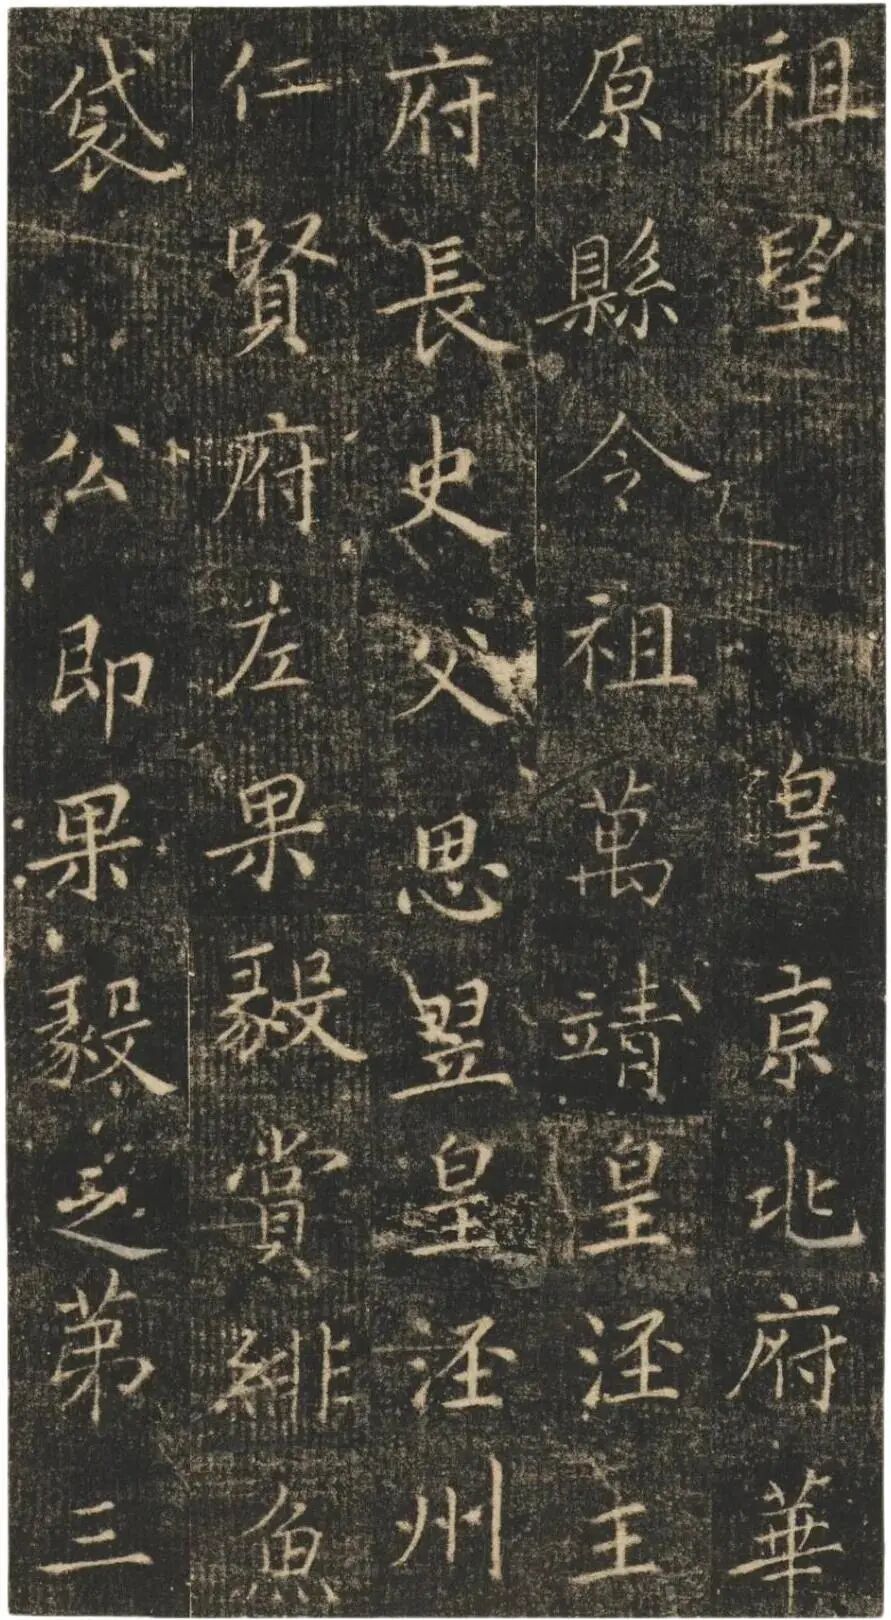 祖望皇京兆府華
原縣令祖萬靖皇涇王
府長史父思曌皇涇州
仁賢府左果毅賞緋魚
袋公即果毅之第三